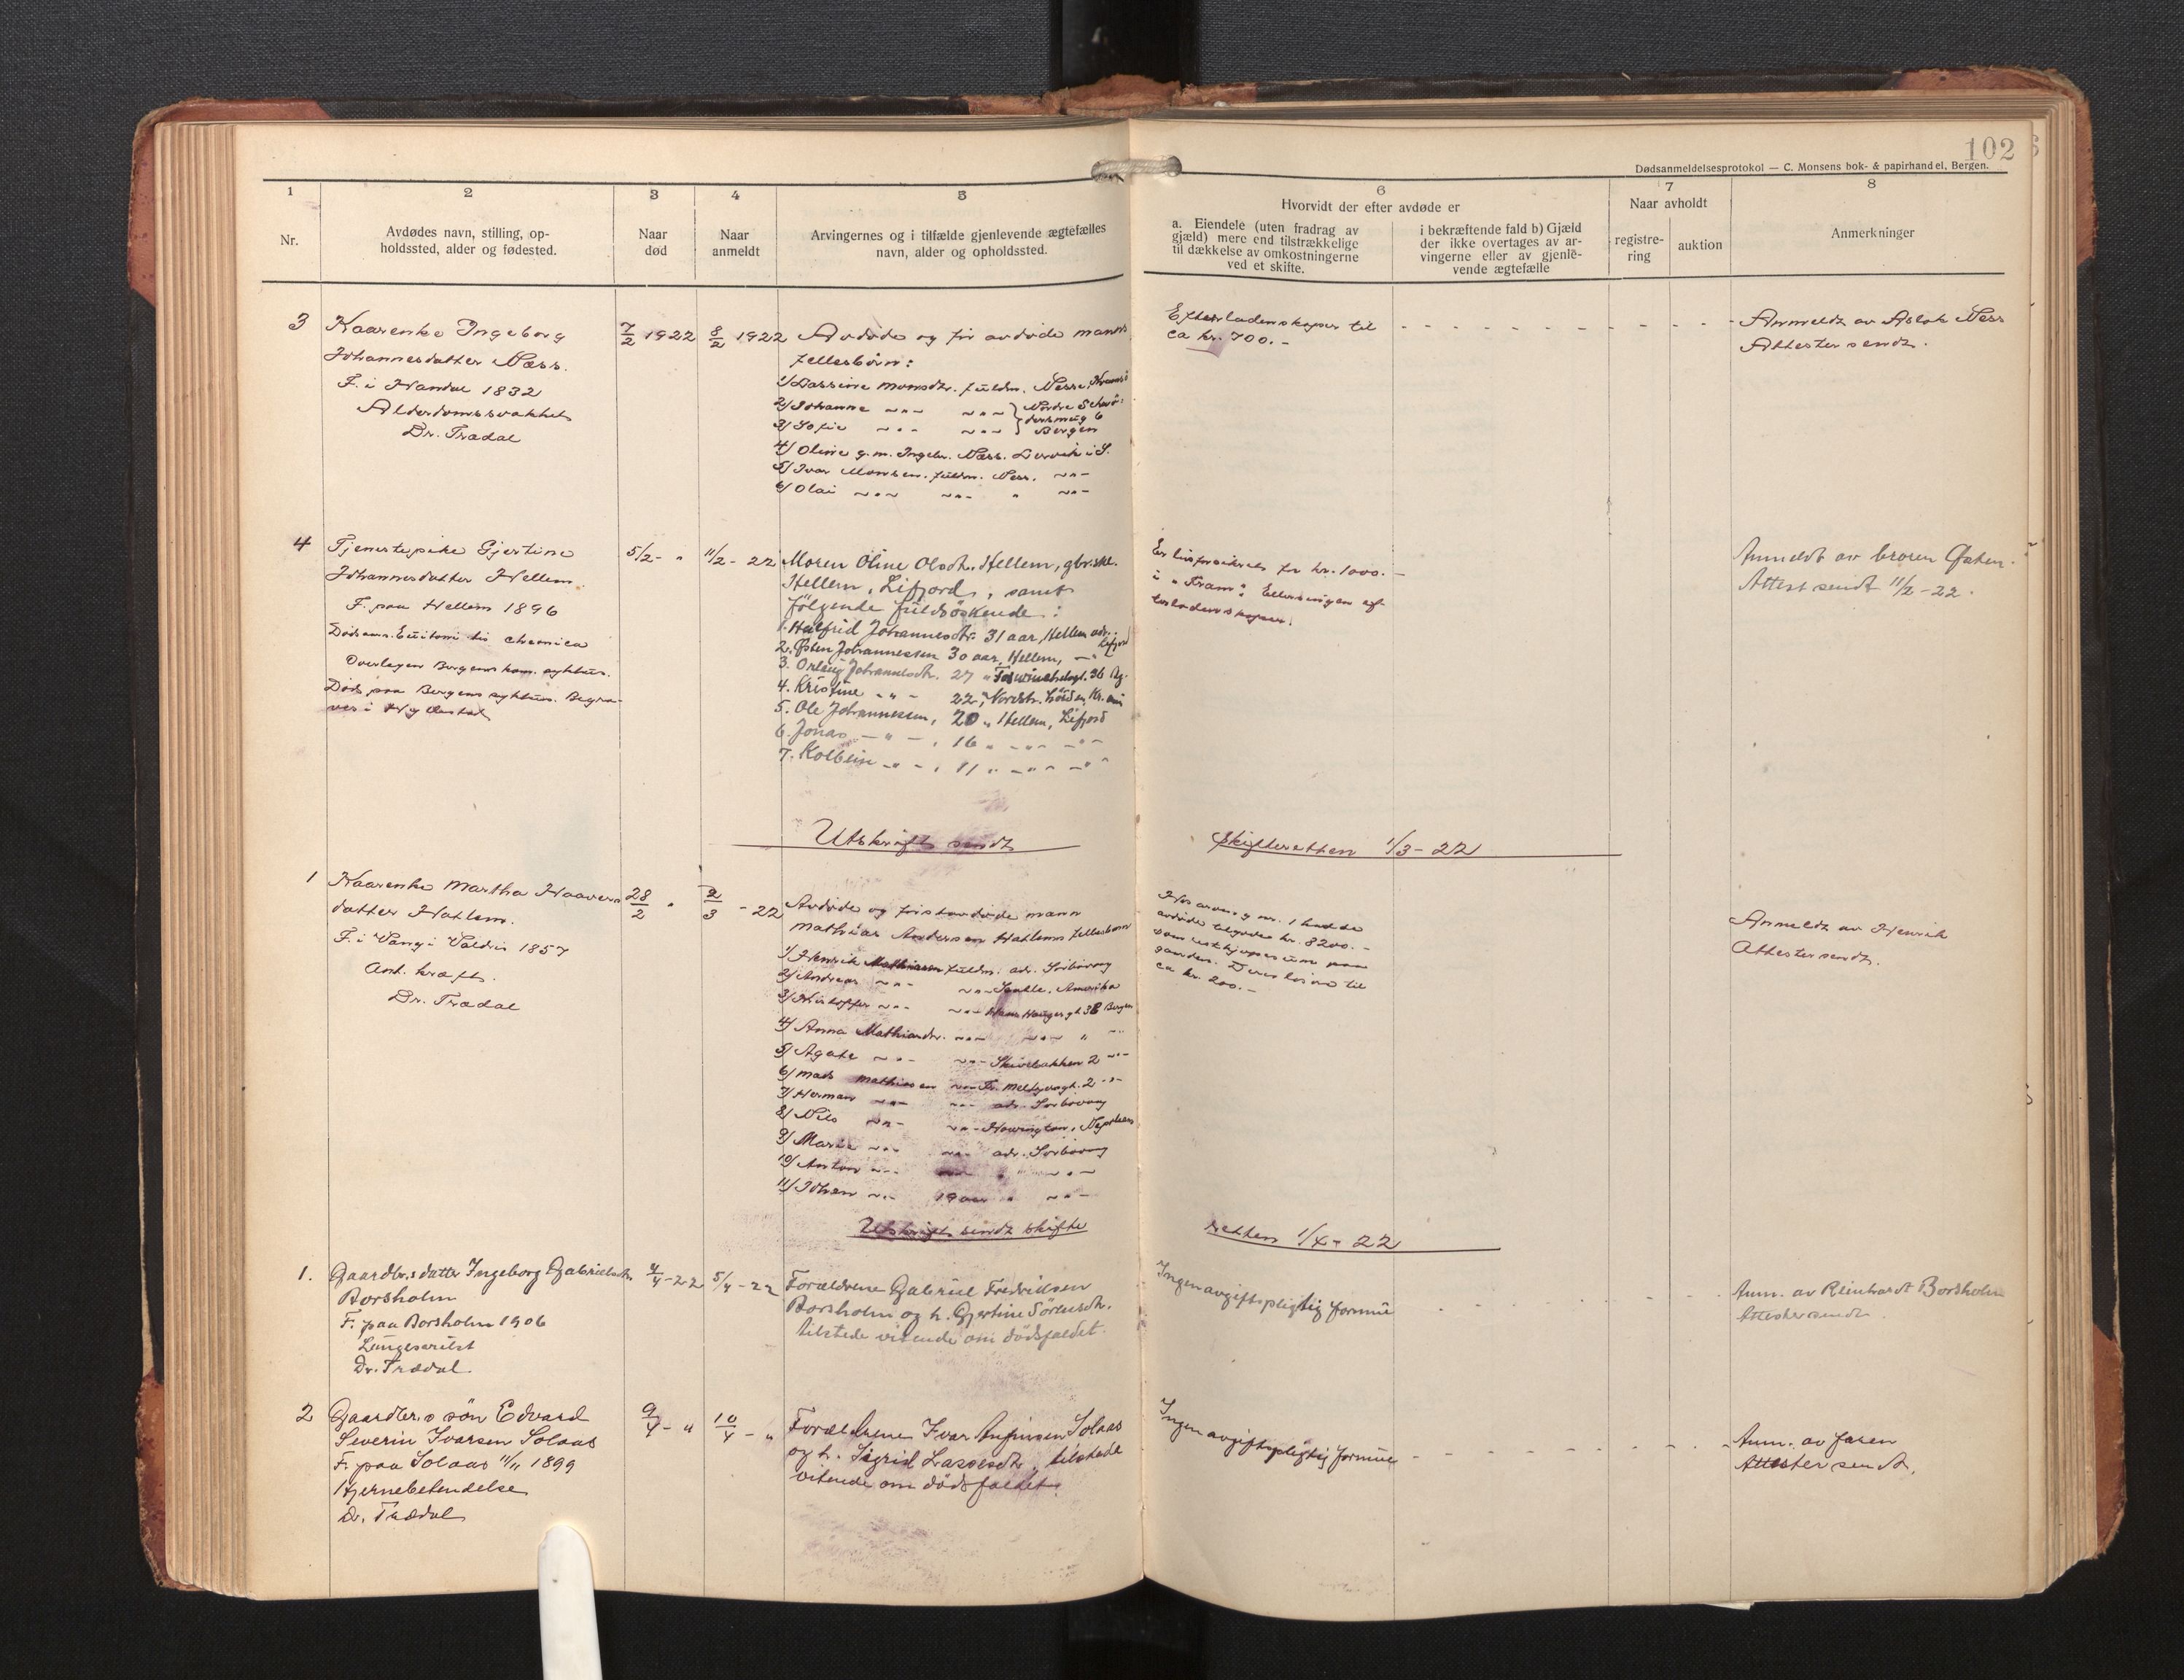 102
Dødsanmeldelsesprotokol — C. Monsens bok- & papirhandel, Bergen.
1 2 3 4 5 6 7 8
Nr.
Avdødes navn, stilling, op-
holdssted, alder og fødested.
Naar
død
Naar
anmeldt
Arvingernes og i tilfælde gjenlevende ægtefælles
navn, alder og opholdssted.
Hvorvidt der efter avdøde er
a. Eiendele (uten fradrag av
gjæld) mere end tilstrækkelige
til dækkelse av omkostningerne
ved et skifte.
i bekræftende fald b) Gjæld
der ikke overtages av ar-
vingerne eller av gjenle-
vende ægtefælle
Naar avholdt
registre-
ring
auktion
Anmerkninger
3
Kaarenke Ingeborg
Johannesdatter Næss.
F. i Nandal 1832
Alderdomssvakhet
Dr. Trædal
7/2 1922
8/2 1922
Avdøde og før avdøde manns
fellesbörn:
1/ Lassine Monsdtr. fuldm. Nesse,
2/ Johanne -"- -"- Nordre Schrö-
dersmug 6
3/ Sofie -"- -"- Bergen
4/ Oline g.m. Ingebr. Næss.
5/ Ivar Monsen. fuldm. Ness. -"-
6/ Olai -"- -"- " -"-
Efterladenskaper til
ca kr. 700.-
Anmeldt av Aslak Ness
Attester sendt.
4
Tjenestepike Gjertine
Johannesdatter Hellem.
F. paa Hellem 1896
chemica
Overlægen Bergens kom. sykehus.
Død paa Bergens sykehus. Begra-
ves i
5/2 - "
11/2 - 22
Moren Oline Olsdtr. Hellem, gbr.ske.
Hellem, Lifjord, samt
følgende fuldsöskende:
1. Halfrid Johannesdtr. 31 aar, Hellem adr. Lifjord
2. Østen Johannessen 30 aar, Hellem, - "
3. Johannesdtr. 27 "
4. Kristine - " - 22 "
5. Ole Johannessen, 20 " Hellem, Lifjord
6. Jonas - " - , 16 " - " - - " -
7. Kolbein - " - , 11 " - " - - " -
Er livsforsikret for kr. 1000.-
i "Fram". Ellers ingen ef-
terladenskaper.
Anmeldt av broren Østen.
Attest sendt 11/2 - 22.
Utskrift sendt skifteretten 1/3 - 22
1
Kaarenke Martha Haavers-
datter Hatlem.
F. i Vang i Valdris 1857
Ant. kræft.
Dr. Trædal
28/2 "
2/3 - 22
Avdøde og førstavdøde mann
Mathias Andersen Hatlems fellesbarn
1/ Henrik Mathiassen fuldm. adr. Sörbövaag
2/ Andreas -"- -"- Seattle, Amerika
3/ Kristoffer -"- -"- Hans Hauges gt 38 Bergen
4/ Anna Mathiasdtr. -"- -"- " -"-
5/ Agate -"- -"- Skivebakken 2 -"-
6/ Mads Mathiesen -"- Fr. Meltzersgt. 2 -"-
7/ Herman -"- -"- adr. Sörbövaag
8/ Nils -"- -"-
9/ Marie -"- -"- adr. Sörbövaag
10/ Anton -"- -"- " -"-
11/ Johan -"- 19 aar " -"-
Hos arving nr. 1 hadde
avdøde tilgode kr. 8200.-
som restkjøpesum paa
gaarden. Deres løsøre til
ca kr. 200.-
Anmeldt av Henrik
Attester sendt.
Utskrift sendt skifte retten 1/4 - 22
1.
Gaardbr.s datter Ingeborg Gabrielsdtr.
Borsholm
F. paa Borsholm 1906
Dr. Trædal
4/4 - 22
5/4 - 22
Forældrene Gabriel Fredriksen
Borsholm og h. Gjertine Sörensdtr.
tilstede vitende om dödsfaldet.
Ingen avgiftspligtig formue
Anm. av Reinhardt Borsholm
Attester sendt.
2
Gaardbr.s sön Edvard
Severin Ivarsen Solaas
F. paa Solaas 11/11 1899
Hjernebetendelse
Dr. Trædal
9/4 - "
10/4 - "
Forældrene Ivar Anfinsen Solaas
og h. Sigrid Lassesdtr. tilstede
vitende om dödsfaldet.
Ingen avgiftspligtig formue
Anm. av faren
Attester sendt.